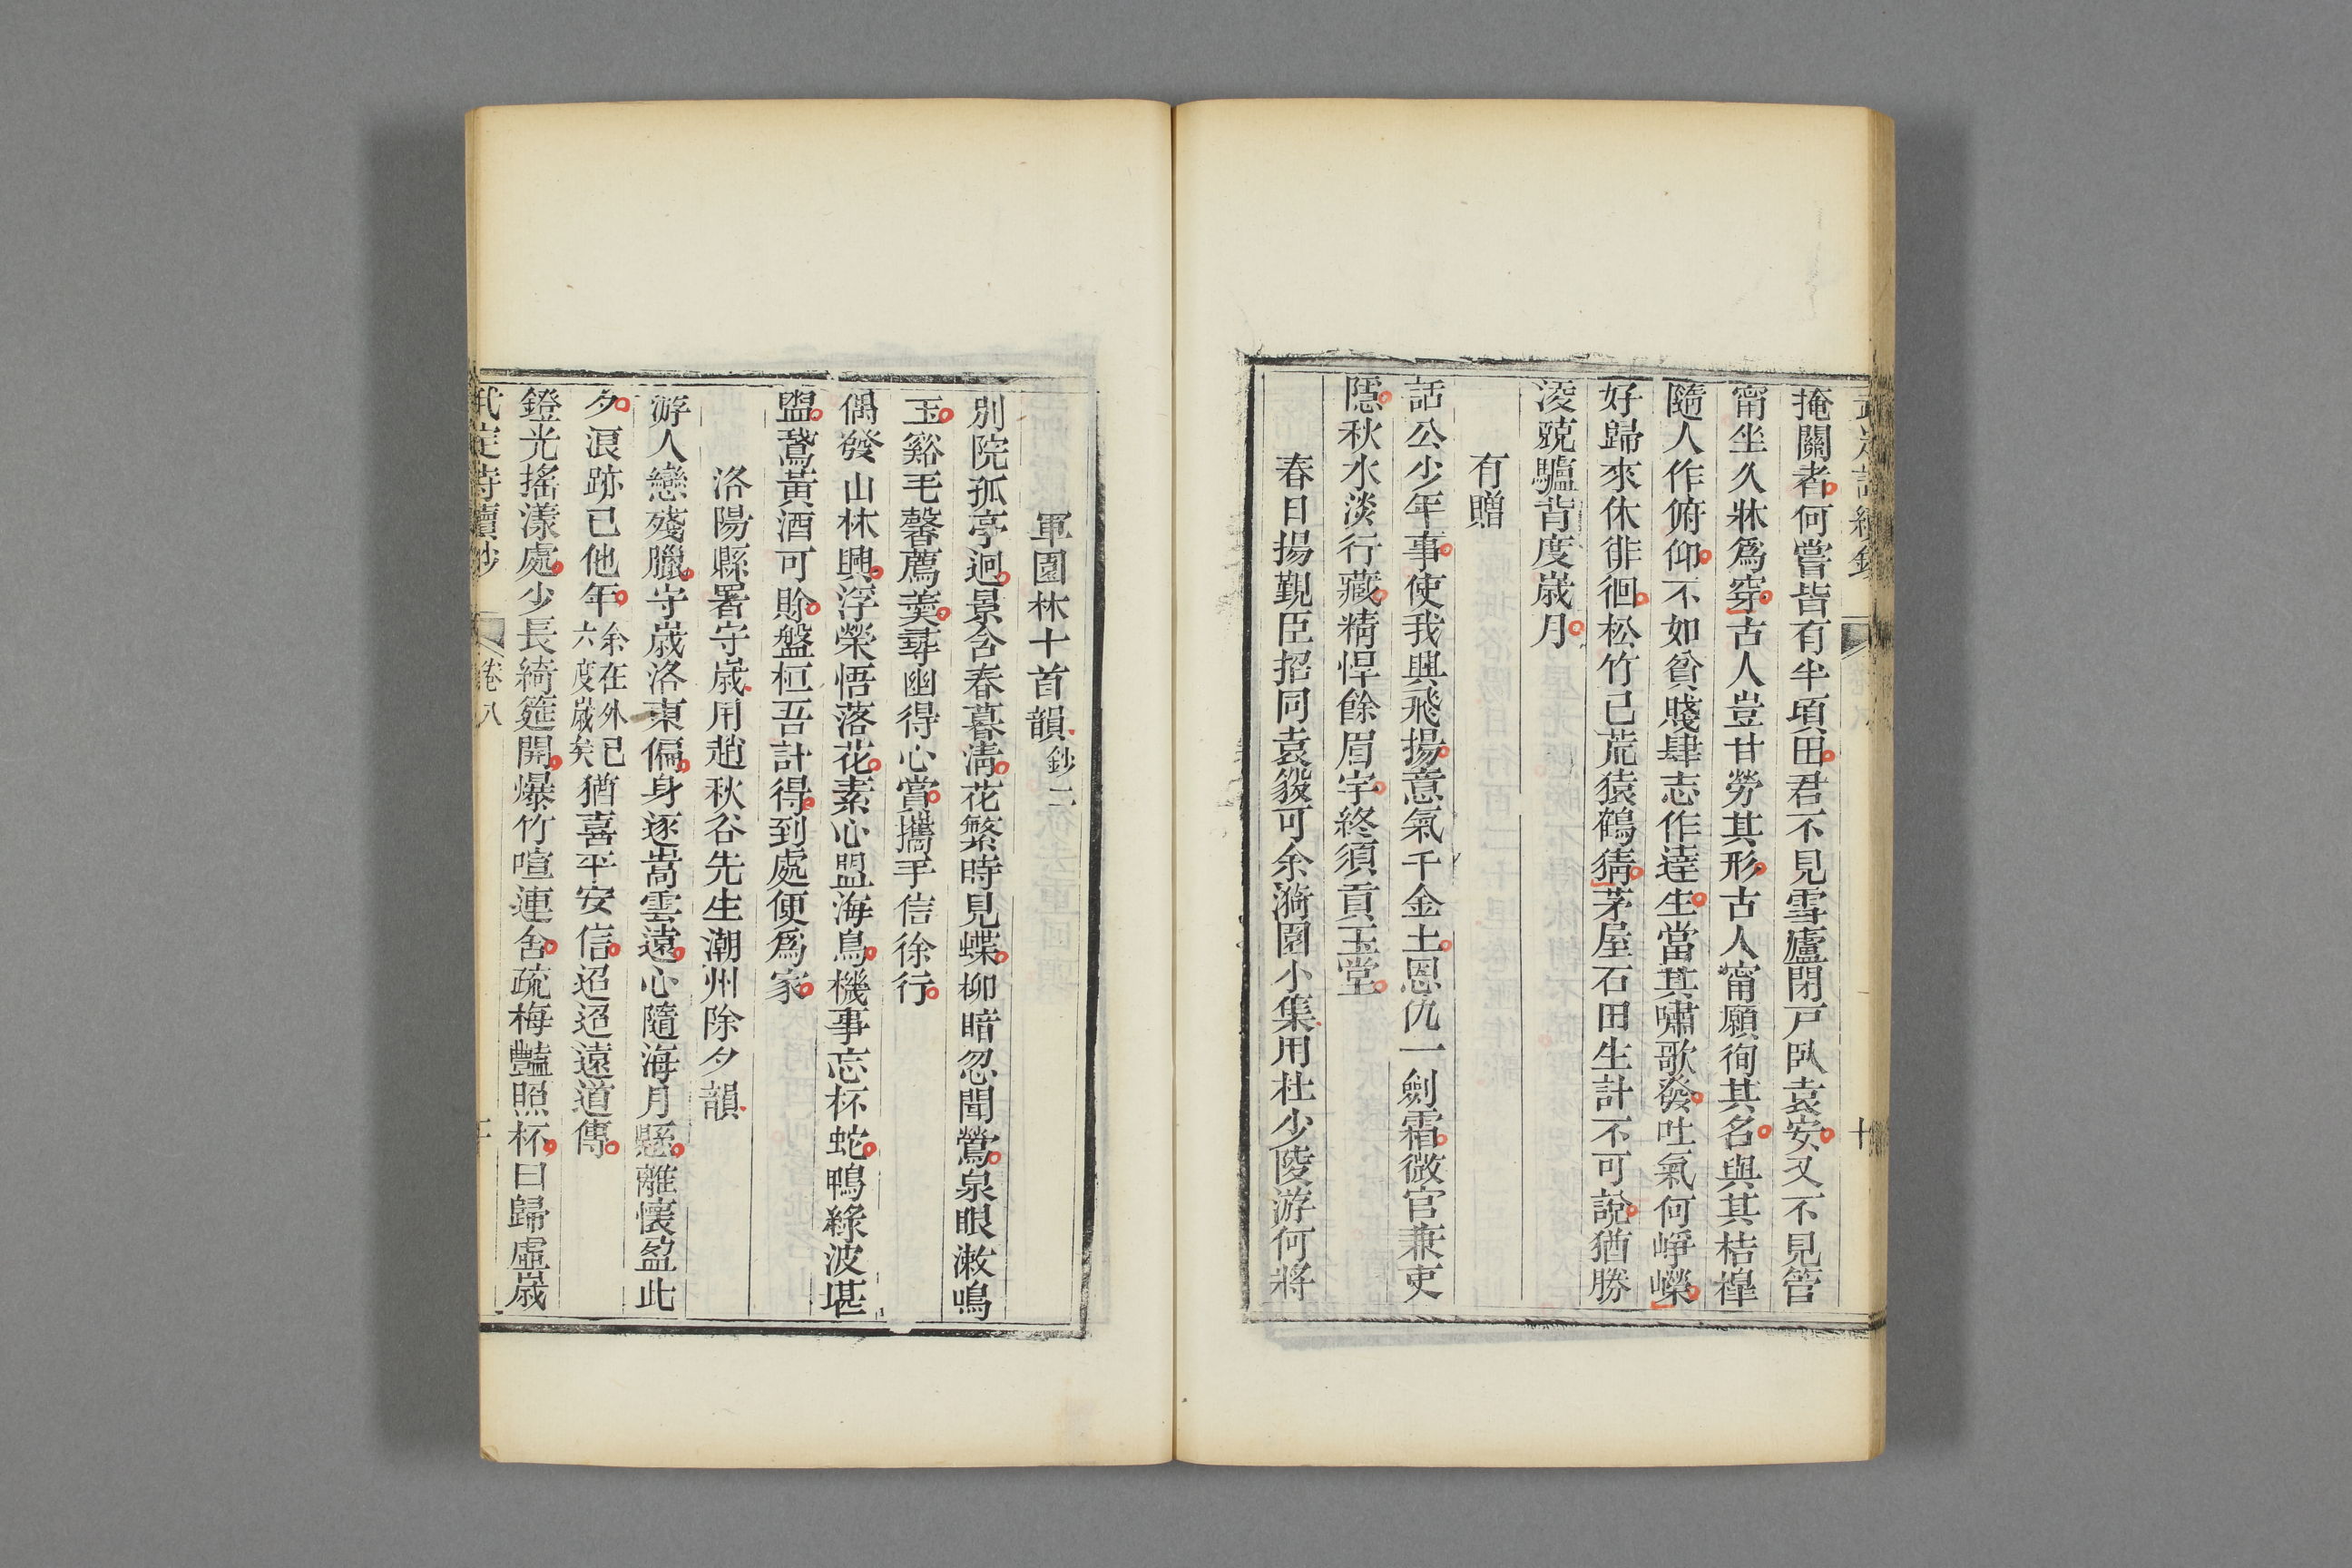 掩關者何嘗皆有半頃田君不見雪廬閉戸臥袁安又不見管
甯坐久牀爲穿古人豈甘勞其形古人甯願徇其名與其桔槔
隨人作俯仰不如貧賤肆志作達生當其嘯歌發吐氣何崢嶸
好歸來休徘徊松竹已荒猿鶴猜茅屋石田生計不可說猶勝
淩兢驢背度歲月
有贈
話公少年事使我與飛揚意氣千金土恩仇一劍霜微官兼吏
隱秋水淡行藏精悍餘眉宇終須貢玉堂
春日揚覲臣招同袁毅可余漪園小集用杜少陵游何將
軍園林十首韻鈔二
別院孤亭迥景含春暮淸花繁時見蝶柳暗忽聞鶯泉眼漱鳴
玉谿毛馨薦羮尋幽得心賞攜手信徐行
偶發山林興浮榮悟落花素心盟海鳥機事忘杯蛇鴨綠波堪
盥鵞黃酒可賒盤桓吾計得到處便爲家
洛陽縣署守歲用趙秋谷先生潮州除夕韻
游人戀殘臘守歲洛東偏身逐嵩雲遠心隨海月懸離懷盈此
夕浪跡已他年余在外已六度歲矣猶喜平安信迢迢遠道傳
鐙光搖漾處少長綺筵開爆竹喧連舍疏梅豔照杯曰歸虛歲
武定詩續鈔 卷八